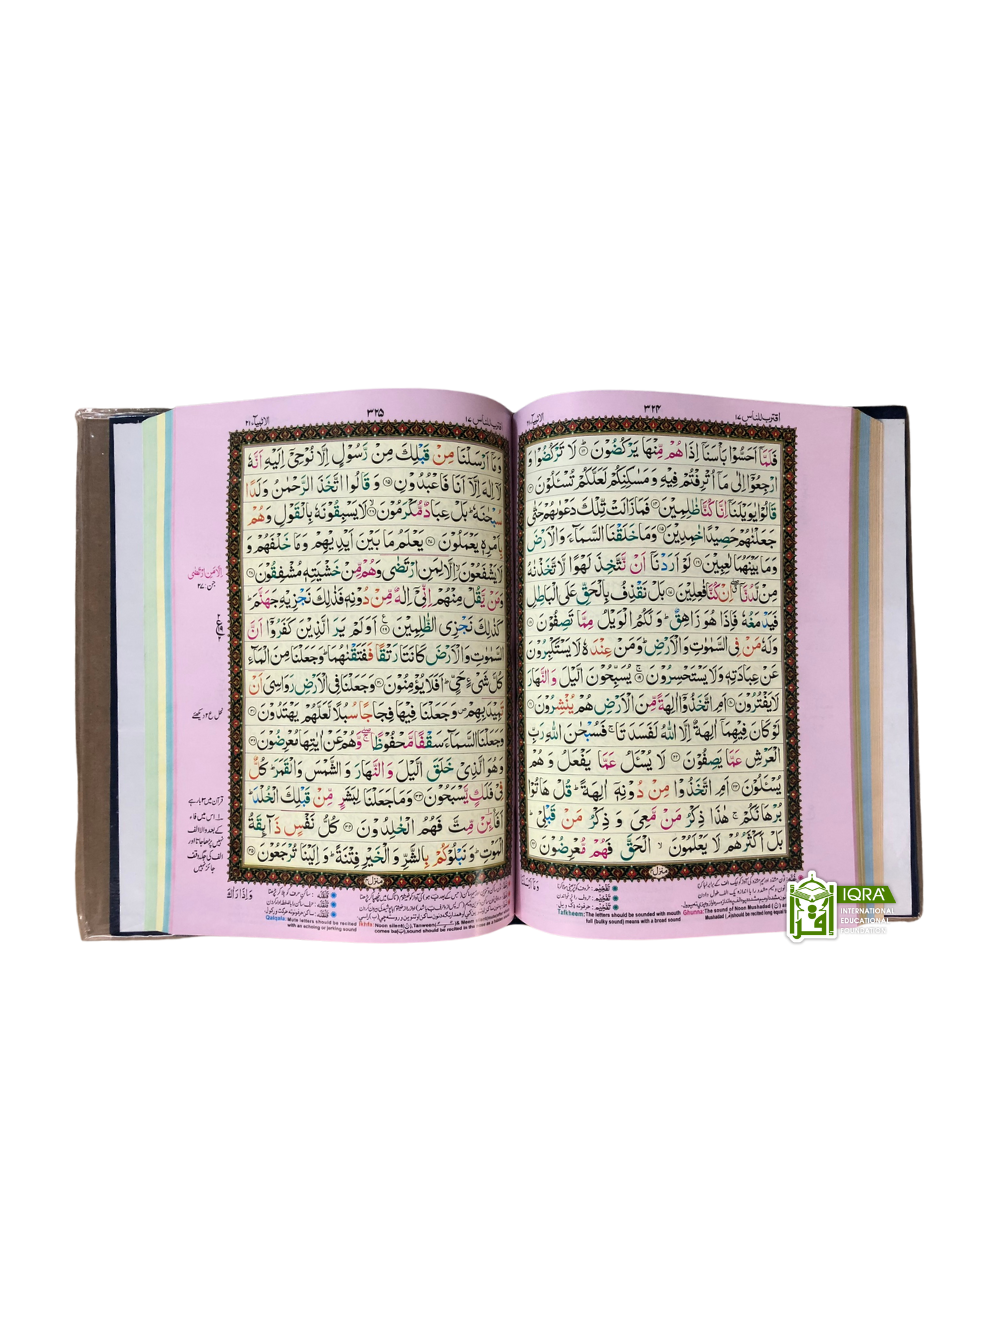 اقترب للناس ۱۷
۳۲۴
الانبیآء ۲۱
فَلَمَّاۤ اَحَسُّوْا بَاْسَنَاۤ اِذَا هُمْ مِّنْهَا يَرْكُضُوْنَ ۱۲ لَا تَرْكُضُوْا وَ
ارْجِعُوْۤا اِلٰى مَاۤ اُتْرِفْتُمْ فِيْهِ وَمَسٰكِنِكُمْ لَعَلَّكُمْ تُسْـَٔلُوْنَ ۱۳
قَالُوْا يٰوَيْلَنَاۤ اِنَّا كُنَّا ظٰلِمِيْنَ ۱۴ فَمَا زَالَتْ تِّلْكَ دَعْوٰىهُمْ حَتّٰى
جَعَلْنٰهُمْ حَصِيْدًا خٰمِدِيْنَ ۱۵ وَمَا خَلَقْنَا السَّمَآءَ وَالْاَرْضَ
وَمَا بَيْنَهُمَا لٰعِبِيْنَ ۱۶ لَوْ اَرَدْنَاۤ اَنْ نَّتَّخِذَ لَهْوًا لَّاتَّخَذْنٰهُ
مِنْ لَّدُنَّاۤ اِنْ كُنَّا فٰعِلِيْنَ ۱۷ بَلْ نَقْذِفُ بِالْحَقِّ عَلَى الْبَاطِلِ
فَيَدْمَغُهٗ فَاِذَا هُوَ زَاهِقٌ ؕ وَلَكُمُ الْوَيْلُ مِمَّا تَصِفُوْنَ ۱۸
وَلَهٗ مَنْ فِى السَّمٰوٰتِ وَالْاَرْضِ ؕ وَمَنْ عِنْدَهٗ لَا يَسْتَكْبِرُوْنَ
عَنْ عِبَادَتِهٖ وَلَا يَسْتَحْسِرُوْنَ ۱۹ يُسَبِّحُوْنَ الَّيْلَ وَالنَّهَارَ
لَا يَفْتُرُوْنَ ۲۰ اَمِ اتَّخَذُوْۤا اٰلِهَةً مِّنَ الْاَرْضِ هُمْ يُنْشِرُوْنَ ۲۱
لَوْ كَانَ فِيْهِمَاۤ اٰلِهَةٌ اِلَّا اللّٰهُ لَفَسَدَتَا ۚ فَسُبْحٰنَ اللّٰهِ رَبِّ
الْعَرْشِ عَمَّا يَصِفُوْنَ ۲۲ لَا يُسْـَٔلُ عَمَّا يَفْعَلُ وَهُمْ
يُسْـَٔلُوْنَ ۲۳ اَمِ اتَّخَذُوْا مِنْ دُوْنِهٖۤ اٰلِهَةً ؕ قُلْ هَاتُوْا
بُرْهَانَكُمْ ۚ هٰذَا ذِكْرُ مَنْ مَّعِيَ وَذِكْرُ مَنْ قَبْلِيْ ؕ
بَلْ اَكْثَرُهُمْ لَا يَعْلَمُوْنَ ۙ الْحَقَّ فَهُمْ مُّعْرِضُوْنَ ۲۴
منزل ۴
Tafkheem: The letters should be sounded with mouth full (bulky sound) means with a broad sound
Ghunna: The sound of Noon Mushaded
اقترب للناس ۱۷
۳۲۵
الانبیآء ۲۱
وَمَاۤ اَرْسَلْنَا مِنْ قَبْلِكَ مِنْ رَّسُوْلٍ اِلَّا نُوْحِيْۤ اِلَيْهِ اَنَّهٗ
لَاۤ اِلٰهَ اِلَّاۤ اَنَا فَاعْبُدُوْنِ ۲۵ وَقَالُوا اتَّخَذَ الرَّحْمٰنُ وَلَدًا
سُبْحٰنَهٗ ؕ بَلْ عِبَادٌ مُّكْرَمُوْنَ ۲۶ لَا يَسْبِقُوْنَهٗ بِالْقَوْلِ وَهُمْ
بِاَمْرِهٖ يَعْمَلُوْنَ ۲۷ يَعْلَمُ مَا بَيْنَ اَيْدِيْهِمْ وَمَا خَلْفَهُمْ وَ
لَا يَشْفَعُوْنَ ۙ اِلَّا لِمَنِ ارْتَضٰى وَهُمْ مِّنْ خَشْيَتِهٖ مُشْفِقُوْنَ ۲۸
وَمَنْ يَّقُلْ مِنْهُمْ اِنِّيْۤ اِلٰهٌ مِّنْ دُوْنِهٖ فَذٰلِكَ نَجْزِيْهِ جَهَنَّمَ ؕ
كَذٰلِكَ نَجْزِى الظّٰلِمِيْنَ ۲۹ اَوَلَمْ يَرَ الَّذِيْنَ كَفَرُوْۤا اَنَّ
السَّمٰوٰتِ وَالْاَرْضَ كَانَتَا رَتْقًا فَفَتَقْنٰهُمَا ؕ وَجَعَلْنَا مِنَ الْمَآءِ
كُلَّ شَيْءٍ حَيٍّ ؕ اَفَلَا يُؤْمِنُوْنَ ۳۰ وَجَعَلْنَا فِى الْاَرْضِ رَوَاسِيَ اَنْ
تَمِيْدَ بِهِمْ ۪ وَجَعَلْنَا فِيْهَا فِجَاجًا سُبُلًا لَّعَلَّهُمْ يَهْتَدُوْنَ ۳۱
وَجَعَلْنَا السَّمَآءَ سَقْفًا مَّحْفُوْظًا ۖ وَّهُمْ عَنْ اٰيٰتِهَا مُعْرِضُوْنَ ۳۲
وَهُوَ الَّذِيْ خَلَقَ الَّيْلَ وَالنَّهَارَ وَالشَّمْسَ وَالْقَمَرَ ؕ كُلٌّ
فِيْ فَلَكٍ يَّسْبَحُوْنَ ۳۳ وَمَا جَعَلْنَا لِبَشَرٍ مِّنْ قَبْلِكَ الْخُلْدَ ؕ
اَفَا۟ئِنْ مِّتَّ فَهُمُ الْخٰلِدُوْنَ ۳۴ كُلُّ نَفْسٍ ذَآئِقَةُ
الْمَوْتِ ؕ وَنَبْلُوْكُمْ بِالشَّرِّ وَالْخَيْرِ فِتْنَةً ؕ وَاِلَيْنَا تُرْجَعُوْنَ ۳۵
منزل ۴
وَاِذَا رَاٰكَ
Qalqala: Mute letters should be recited with an echoing or jerking sound
IQRA
INTERNATIONAL
EDUCATIONAL
FOUNDATION